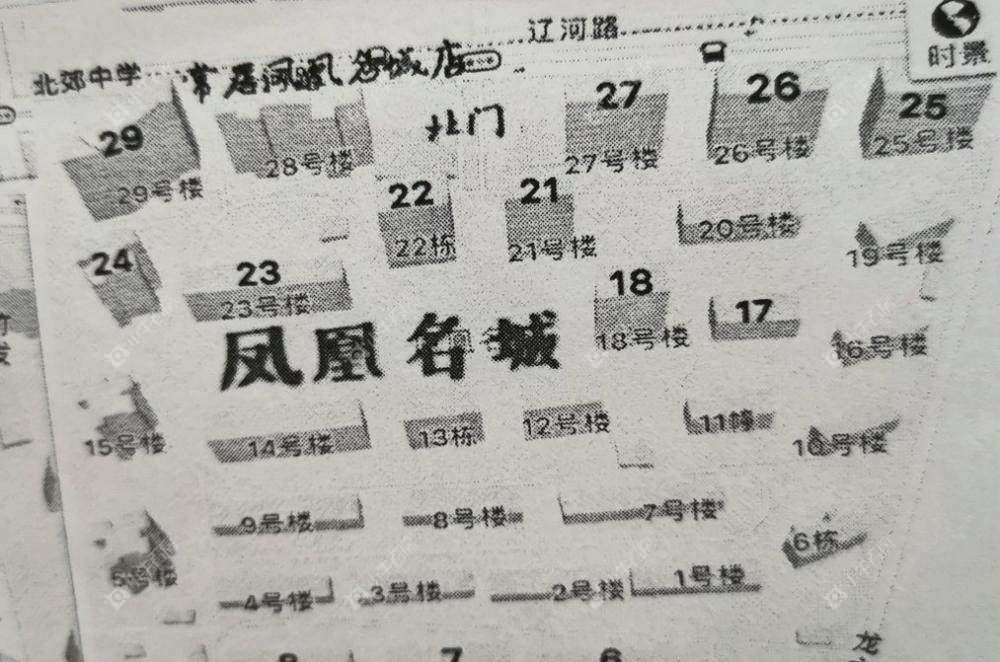 辽河路
时景
北郊中学
常居凤凰名城店
北门
29
29号楼
28号楼
27
27号楼
26
26号楼
25
25号楼
22
22栋
21
21号楼
20号楼
19号楼
24
23
23号楼
18
18号楼
17
16号楼
凤凰名城
15号楼
14号楼
13栋
12号楼
11幢
10号楼
9号楼
8号楼
7号楼
6栋
5号楼
4号楼
3号楼
2号楼
1号楼
龙
7